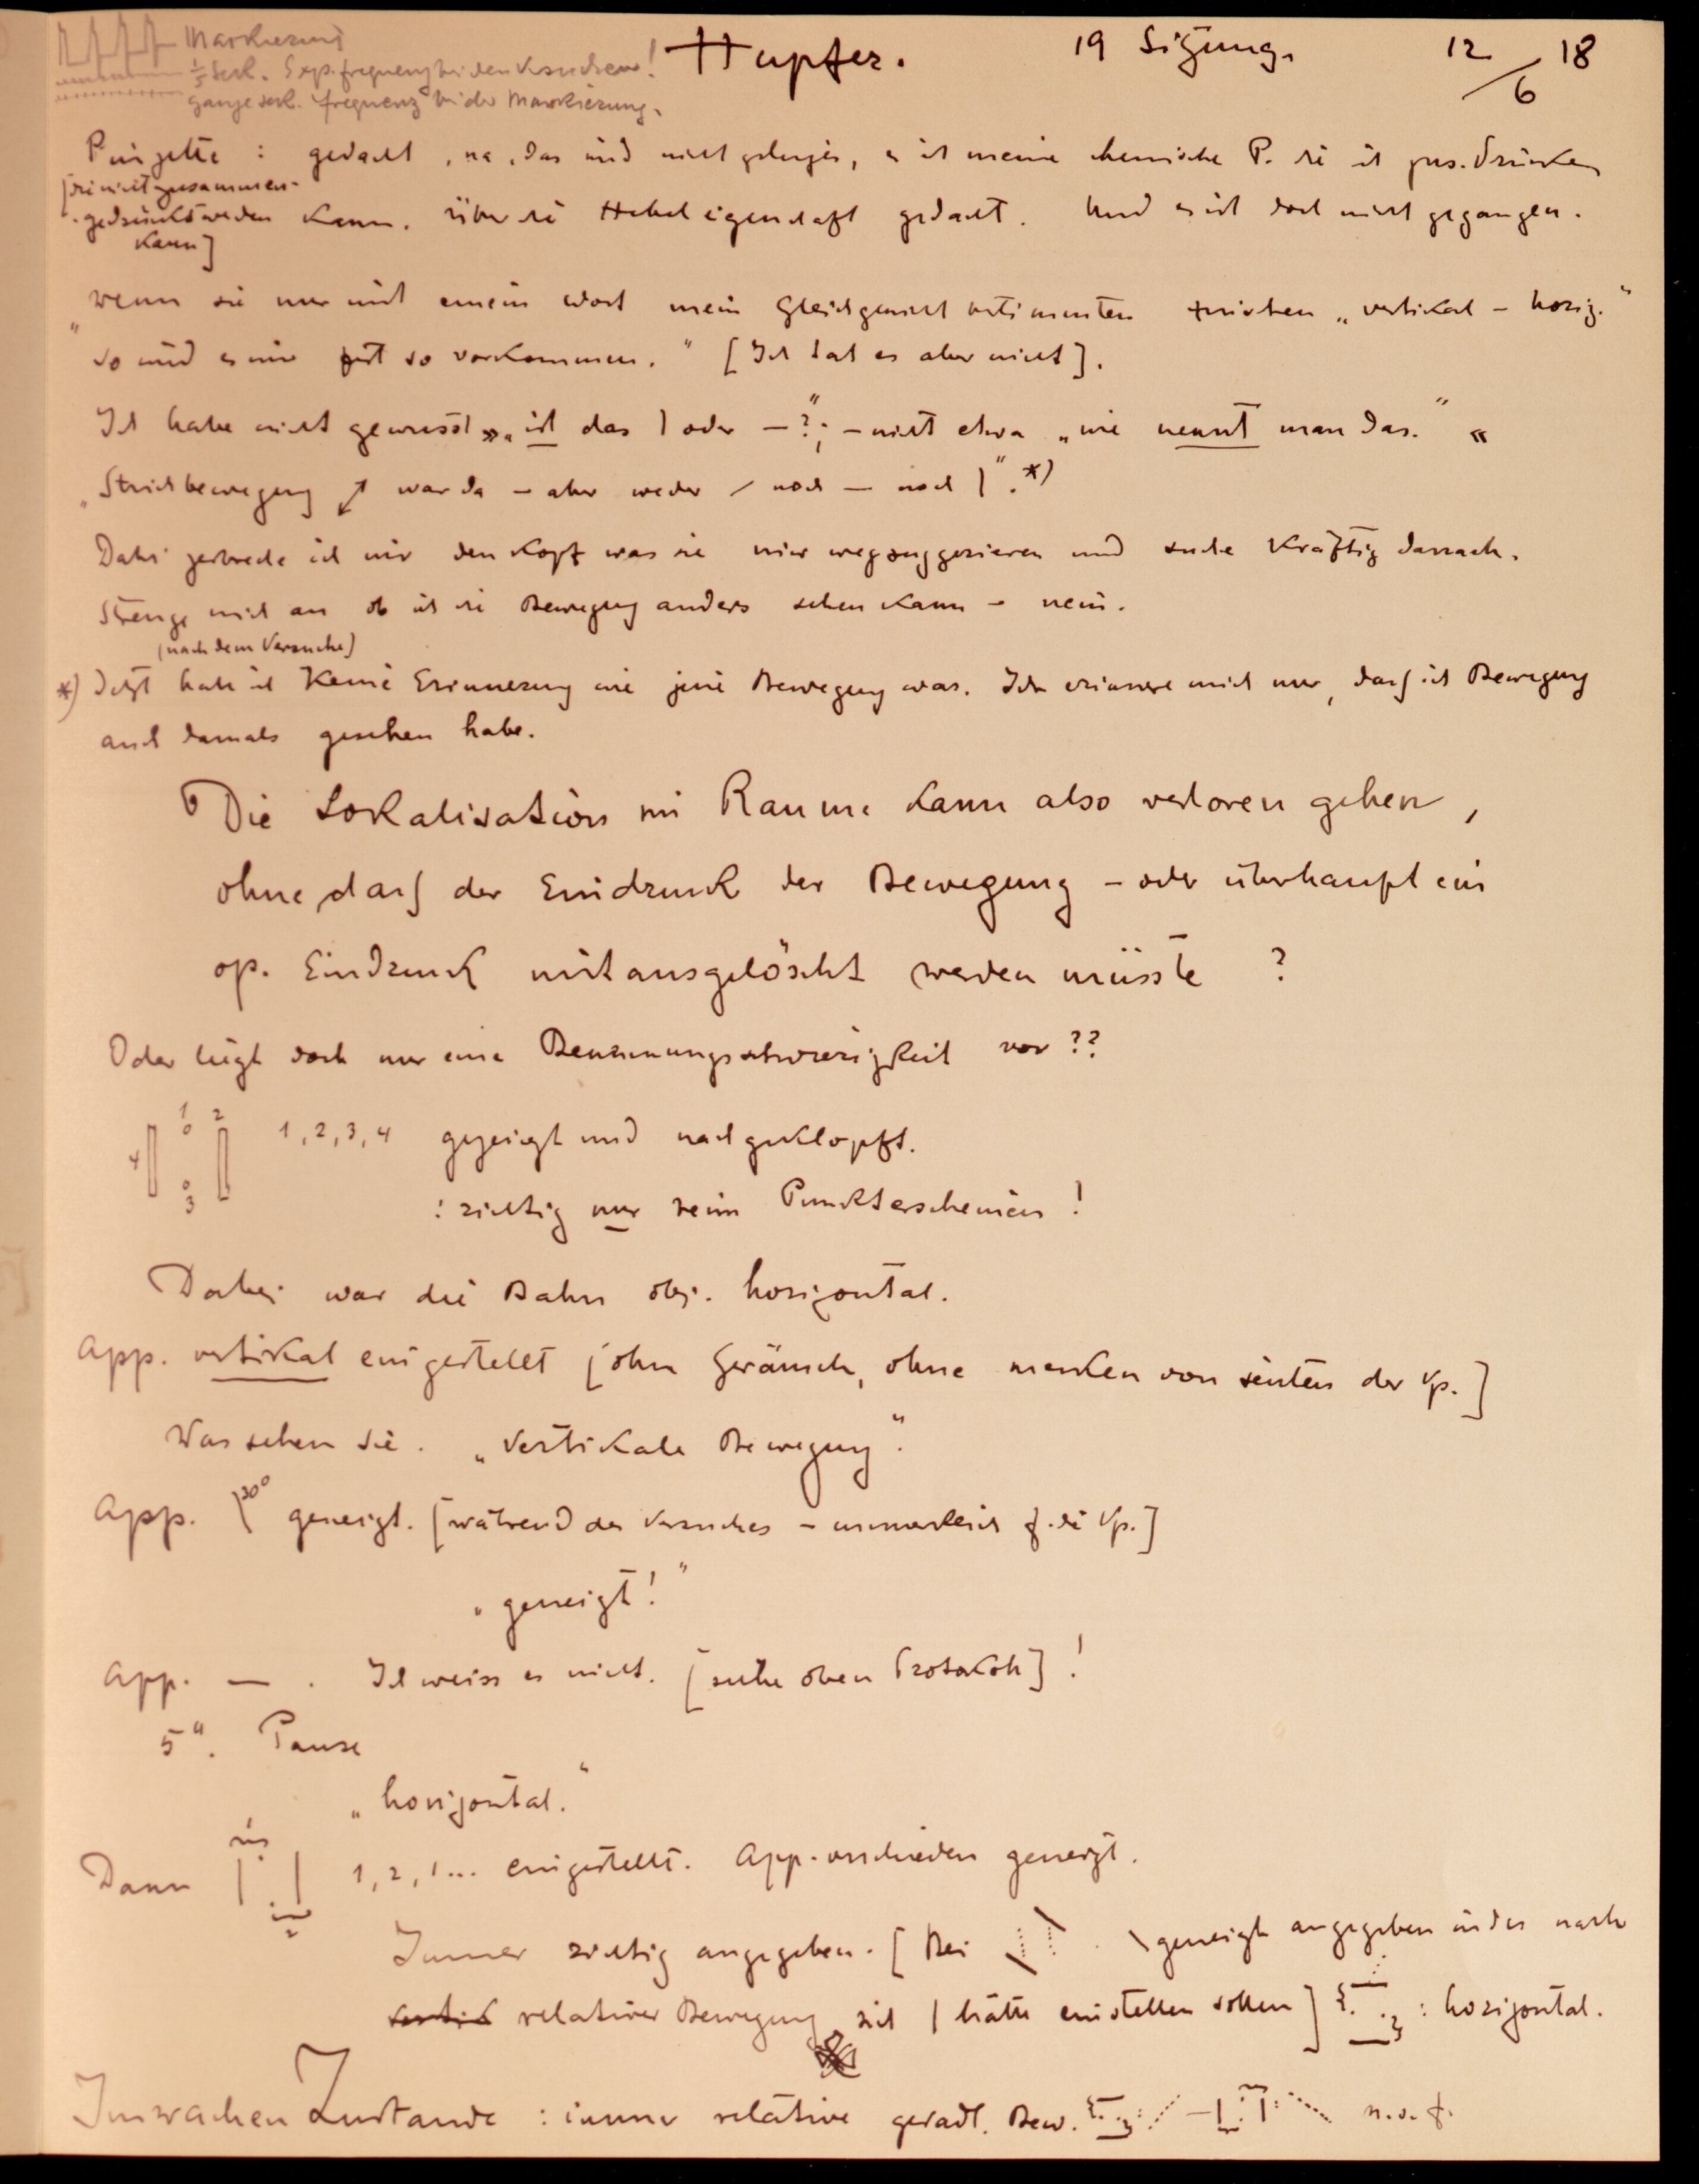 Markierung
1/5 Sek. Exp. frequenz bei den Versuchen!
ganze sek. frequenz bei der Markierung.
Hupfer. 19 Sitzung. 12/6 18
Pinzette : gedacht, na, das wird nicht gelingen, es ist meine chemische P. die ist zus. drücken
[die nicht zusammen-
gedrückt werden kann. Über die Hebeleigenschaft gedacht. Und es ist doch nicht gegangen.
kann]
„wenn sie nur mit einem Wort mein Gleichgewicht bestimmten zwischen „vertikal – horiz."
so wird es mir jetzt so vorkommen." [Ich tat es aber nicht].
Ich habe nicht gewusst »„ist das | oder — ?"; – nicht etwa „wie nennt man das." «
„Strichbewegung ↗ war da – aber weder / noch — noch |". *)
Dabei zerbreche ich mir den Kopf was sie mir wegsuggerieren und suche Kräftig darnach.
Strenge mich an ob ich die Bewegung anders sehen kann – nein.
(nach dem Versuche)
*) Jetzt habe ich Keine Erinnerung wie jene Bewegung war. Ich erinnere mich nur, dass ich Bewegung
auch damals gesehen habe.
Die Lokalisation im Raume kann also verloren gehen,
ohne, dass der Eindruck der Bewegung – oder überhaupt ein
op. Eindruck mitausgelöscht werden müsste ?
Oder liegt doch nur eine Benennungsschwierigkeit vor ??
1 2
4 3
1, 2, 3, 4 gezeigt und nachgeklopft.
: richtig nur beim Punkterscheinen !
Dabei war die Bahn obj. horizontal.
App. vertikal eingestellt [ohne Geräusch, ohne merken von seiten der Vp.]
Was sehen Sie. „Vertikale Bewegung".
App. \ 30° geneigt. [während des Versuches – unmerklich f. die Vp.]
„geneigt!"
App. — . Ich weiss es nicht. [siehe oben Protokoll] !
5". Pause
„horizontal."
Dann 1, 2, 1... eingestellt. App. verschieden geneigt.
Immer richtig angegeben. [Bei \ geneigt angegeben indes nach
relativer Bewegung sich | hätte einstellen sollen] : horizontal.
Im wachen Zustande : immer relative geradl. Bew. u.s.f.